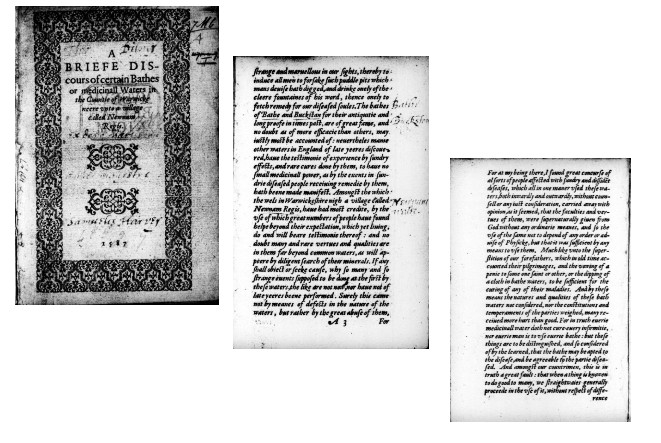 A
BRIEFE DIS-
cours of certain Bathes
or medicinall Waters in
the Countie of Warwicke
neere vnto a village
called Newnam
Regis.
1587
strange and maruellous in our sights, thereby to
induce all men to forsake such puddle pits which
mans deuise hath digged, and drinke onely of the
cleere fountaines of his word, thence onely to
fetch remedy for our diseased soules. The bathes
of Bathe and Buckstan for their antiquitie and
long proofe in times past, are of great fame, and
no doubt as of more efficacie than others, may
iustly must be accounted of: neuertheles manie
other waters in England of late yeeres discoue-
red, haue the testimonie of experience by sundry
effects, and rare cures done by them, to haue no
small medicinall power, as by the euents in sun-
drie diseased people receiuing remedie by them,
hath beene made manifest. Amongst the which
the wels in Warwickshire nigh a village called
Newnam Regis, haue had most credite, by the
vse of which great numbers of people haue found
helpe beyond their expectation, which yet liuing,
do and will beare testimonie thereof: and no
doubt many and rare vertues and qualities are
in them far beyond common waters, as will ap-
peere by diligent search of their minerals. If any
shall obiect or seeke cause, why so many and so
strange euents supposed to be done at the first by
these waters, the like are not now, nor haue not of
late yeeres beene performed. Surely this came
not by meanes of defects in the nature of the
waters, but rather by the great abuse of them,
A 3 For
Baths
Buckston
For at my being there, I found great concurse of
al sorts of people affected with sundry and diuerse
diseases, which all in one maner vsed these wa-
ters, both inwardly and outwardly, without coun-
sell or any iust consideration, carried away with
opinion, as it seemed, that the faculties and ver-
tues of them, were supernaturally giuen from
God without any ordinarie meanes, and so the
vse of the same not to depend of any order or ad-
uise of Physicke, but that it was sufficient by any
means to vse them. Much like vnto the super-
stition of our forefathers, which in old time ac-
counted their pilgrimages, and the wauing of a
penie to some one saint or other, or the dipping of
a cloth in bathe waters, to be sufficient for the
curing of any of their maladies. And by these
means the natures and qualities of these bath
waters not considered, nor the constitutions and
temperaments of the parties weighed, many re-
ceiued more hurt than good. For in truth euerie
medicinall water doth not cure euery infirmitie,
nor euerie man is to vse euerie bathe: but these
things are to be distinguished, and so considered
of by the learned, that the bathe may be apted to
the disease, and be agreeable to the partie disea-
sed. And amongst our countrimen, this is in
truth a great fault: that when a thing is knowen
to do good to many, we straightwaies generally
proceede in the vse of it, without respect of diffe-
rence